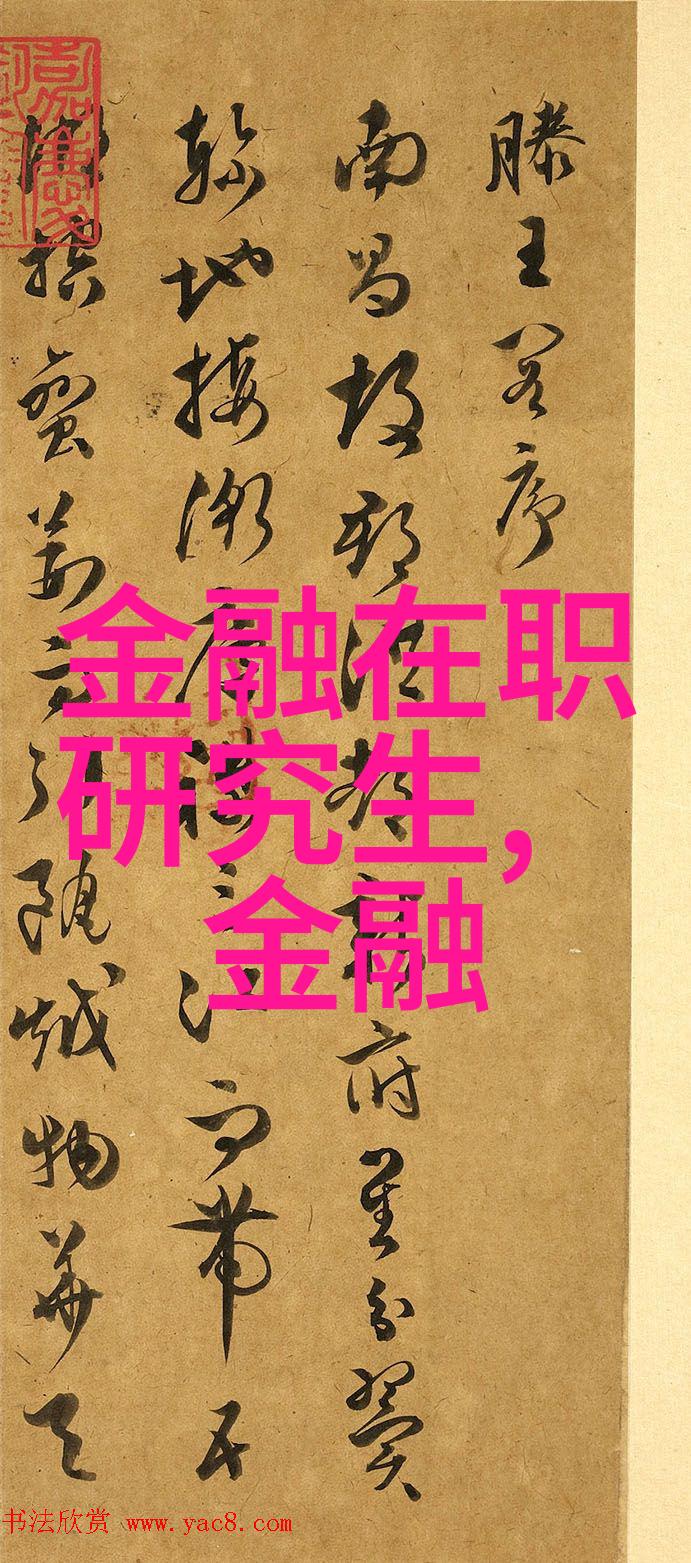 滕王閣序
南昌故郡洪都新府星分翼
軫地接衡廬襟三江而帶五
湖控蠻荊而引甌越物華天
金融在职
研究生，
金融
书法欣赏 www.yac8.com